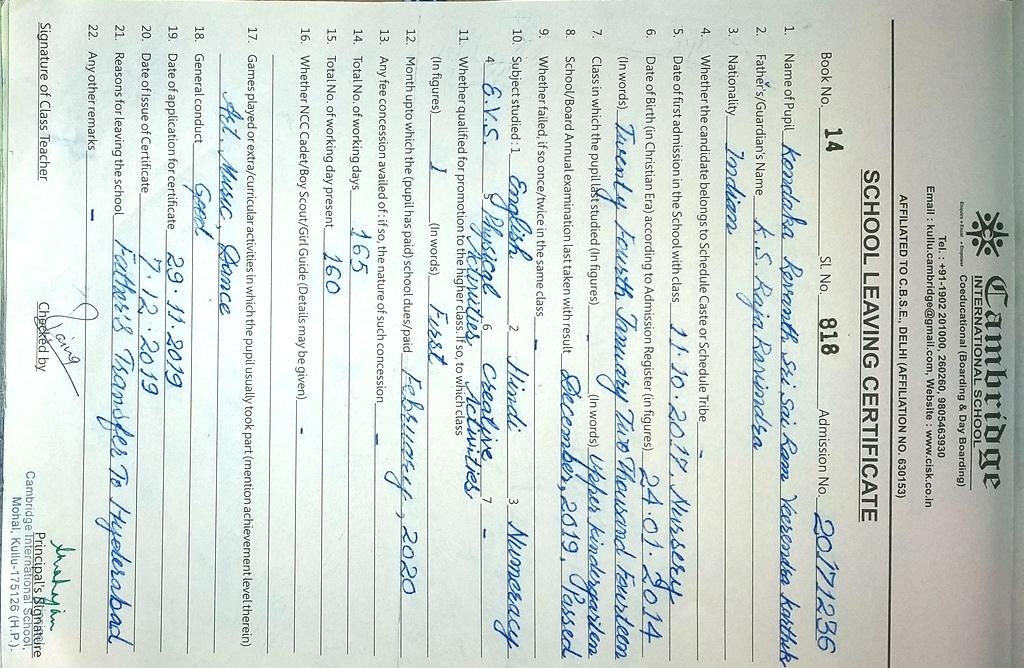 Cambridge
INTERNATIONAL SCHOOL
Empower • Excel • Empower
Coeducational (Boarding & Day Boarding)
Tel.: +91-1902 201000, 260260, 9805463930
Email : kullu.cambridge@gmail.com, Website : www.cisk.co.in
AFFILIATED TO C.B.S.E., DELHI (AFFILIATION NO. 630153)
SCHOOL LEAVING CERTIFICATE
Book No. 14 Sl. No. 818 Admission No. 20171236
1. Name of Pupil Kondaka Revanth Sri Sai Ram Veerendra Kartik
2. Father's/Guardian's Name K.S. Raja Ravindra
3. Nationality Indian
4. Whether the candidate belongs to Schedule Caste or Schedule Tribe -
5. Date of first admission in the School with class 11.10.2017, Nursery
6. Date of Birth (in Christian Era) according to Admission Register (in figures) 24.01.2014
(In words) Twenty Fourth January Two Thousand Fourteen
7. Class in which the pupil last studied (In figures) - (In words) Upper kindergarten
8. School/Board Annual examination last taken with result December, 2019, Passed
9. Whether failed, if so once/twice in the same class -
10. Subject studied : 1 English 2 Hindi 3 Numeracy
4 E.V.S. 5 Physical Activities 6 Creative Activities 7 -
11. Whether qualified for promotion to the higher class. If so, to which class
(In figures) 1 (In words) First
12. Month upto which the (pupil has paid) school dues/paid February, 2020
13. Any fee concession availed of : if so, the nature of such concession -
14. Total No. of working days 165
15. Total No. of working day present 160
16. Whether NCC Cadet/Boy Scout/Girl Guide (Details may be given) -
17. Games played or extra/curricular activities in which the pupil usually took part (mention achievement level therein)
Art, Music, Dance
18. General conduct Good
19. Date of application for certificate 29.11.2019
20. Date of Issue of Certificate 7.12.2019
21. Reasons for leaving the school Father's Transfer To Hyderabad
22. Any other remarks -
Signature of Class Teacher Checked by Principal's Signature
Cambridge International School,
Mohal, Kullu-175126 (H.P.)